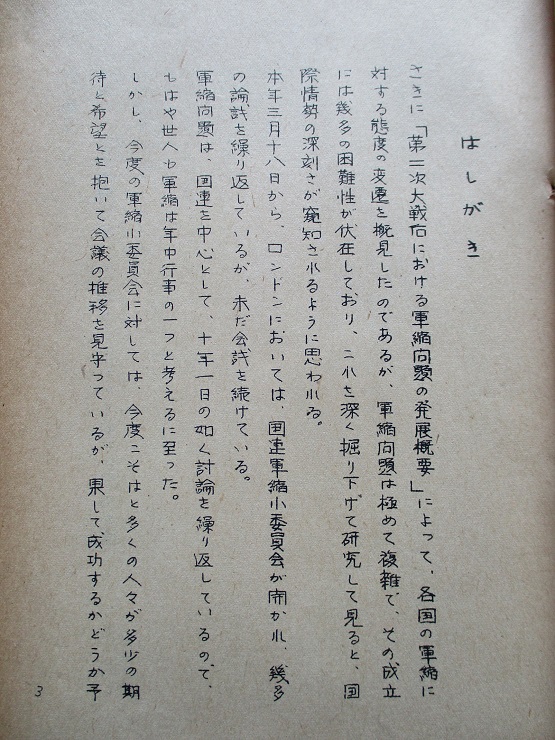 はしがき
さきに「第二次大戦后における軍縮问題の発展概要」によって、各国の軍縮に
対する態度の変遷を概見したのであるが、軍縮问題は極めて複雑で、その成立
には幾多の困難性が伏在しており、これを深く掘り下げて研究して見ると、国
際情勢の深刻さが窺知されるように思われる。
本年三月十八日から、ロンドンにおいては、国連軍縮小委員会が開かれ、幾多
の論議を繰り返しているが、未だ会議を続けている。
軍縮问題は、国連を中心として、十年一日の如く討論を繰り返しているので、
もはや世人も軍縮は年中行事の一つと考えるに至った。
しかし、今度の軍縮小委員会に対しては、今度こそはと多くの人々が多少の期
待と希望とを抱いて会議の推移を見守っているが、果して成功するかどうか予
3